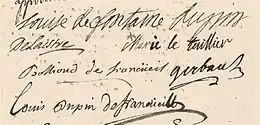 Louise de fontaine dupin
Delaistre Marie le tellier
Bollioud de francüeil gerbault
Louis dupin defrancüeill